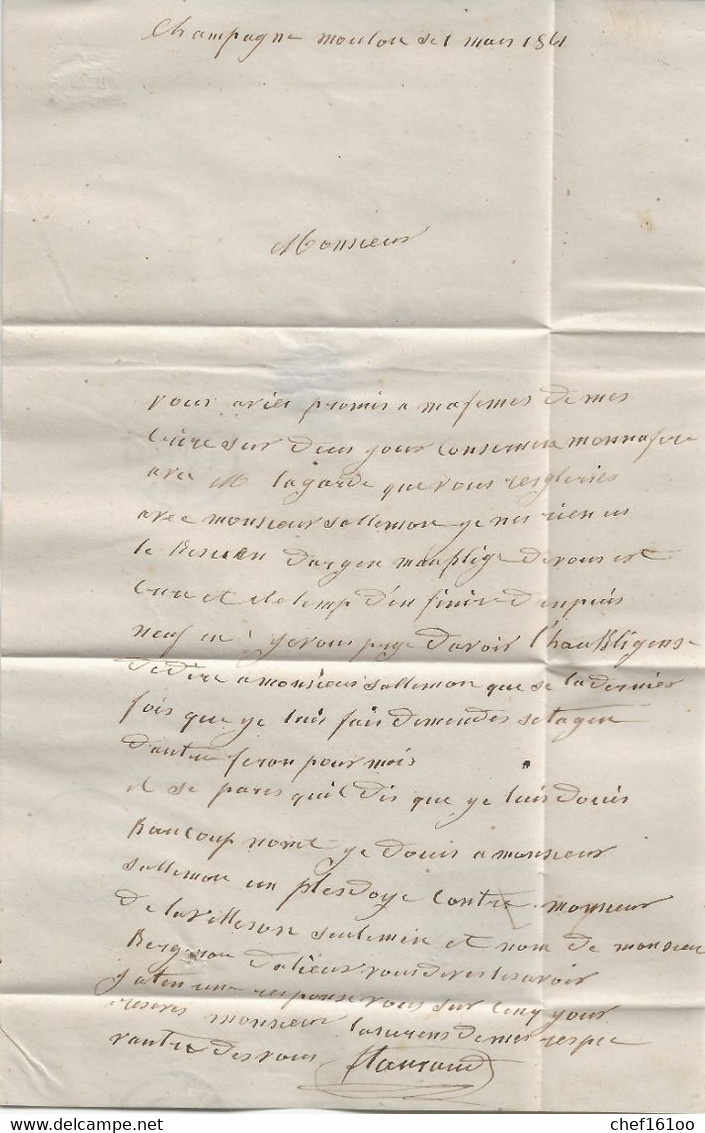 Champagne mouton le 1 mars 1861
Monsieur
vous aviés promis a mafemes demes
Ecire sur deus jour Consernen monnafere
avec Mr lagarde que vous resgleries
avec monsieur sallemon ye nes rien eu
le Besuen dargen moublige devous est
Crire et ile temp den finire depuis
neuf an yevous prye davoir lhaubligense
dedire a monsieur sallemon que se la dernier
fois que ye luis fais demender setargen
dautre feron pour mois
il se pares quil dis que ye luis douis
Baucoup nomt ye douis a monsieur
sallemon un plesdoye Contre monsieur
de lavilleson seulemen et nom de monsieur
Bergnon dalieur vous deves lesavoir
jaten une responsevous sur Cinq your
reseves monsieur lasurens demes respec
vautre desvous